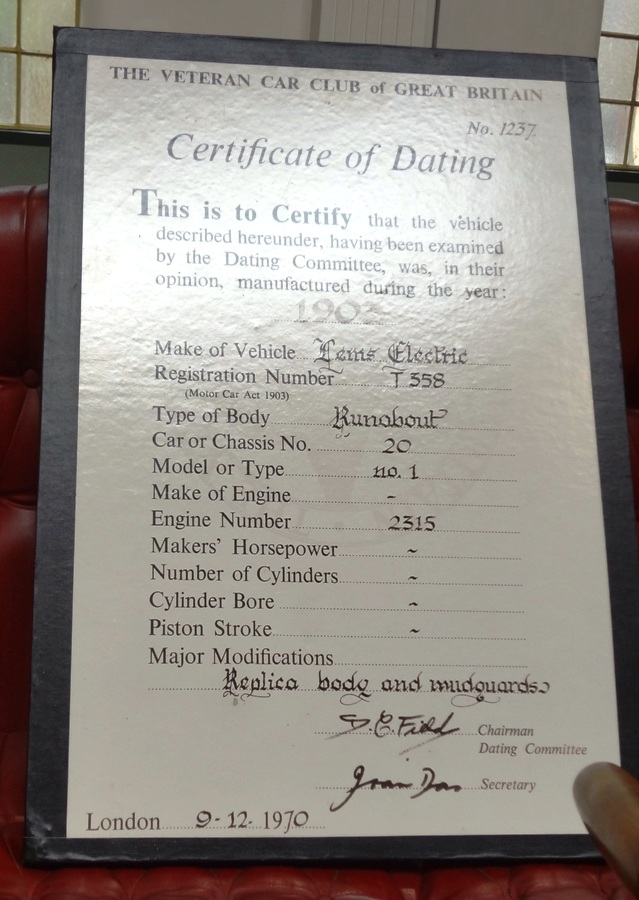 THE VETERAN CAR CLUB of GREAT BRITAIN
No. 1237.
Certificate of Dating
This is to Certify that the vehicle
described hereunder, having been examined
by the Dating Committee, was, in their
opinion, manufactured during the year:
Make of Vehicle Lems Electric
Registration Number T 358
(Motor Car Act 1903)
Type of Body Runabout
Car or Chassis No. 20
Model or Type no. 1
Make of Engine -
Engine Number 2315
Makers' Horsepower ~
Number of Cylinders ~
Cylinder Bore ~
Piston Stroke ~
Major Modifications
Replica body and mudguards
Chairman
Dating Committee
Secretary
London 9-12-1970